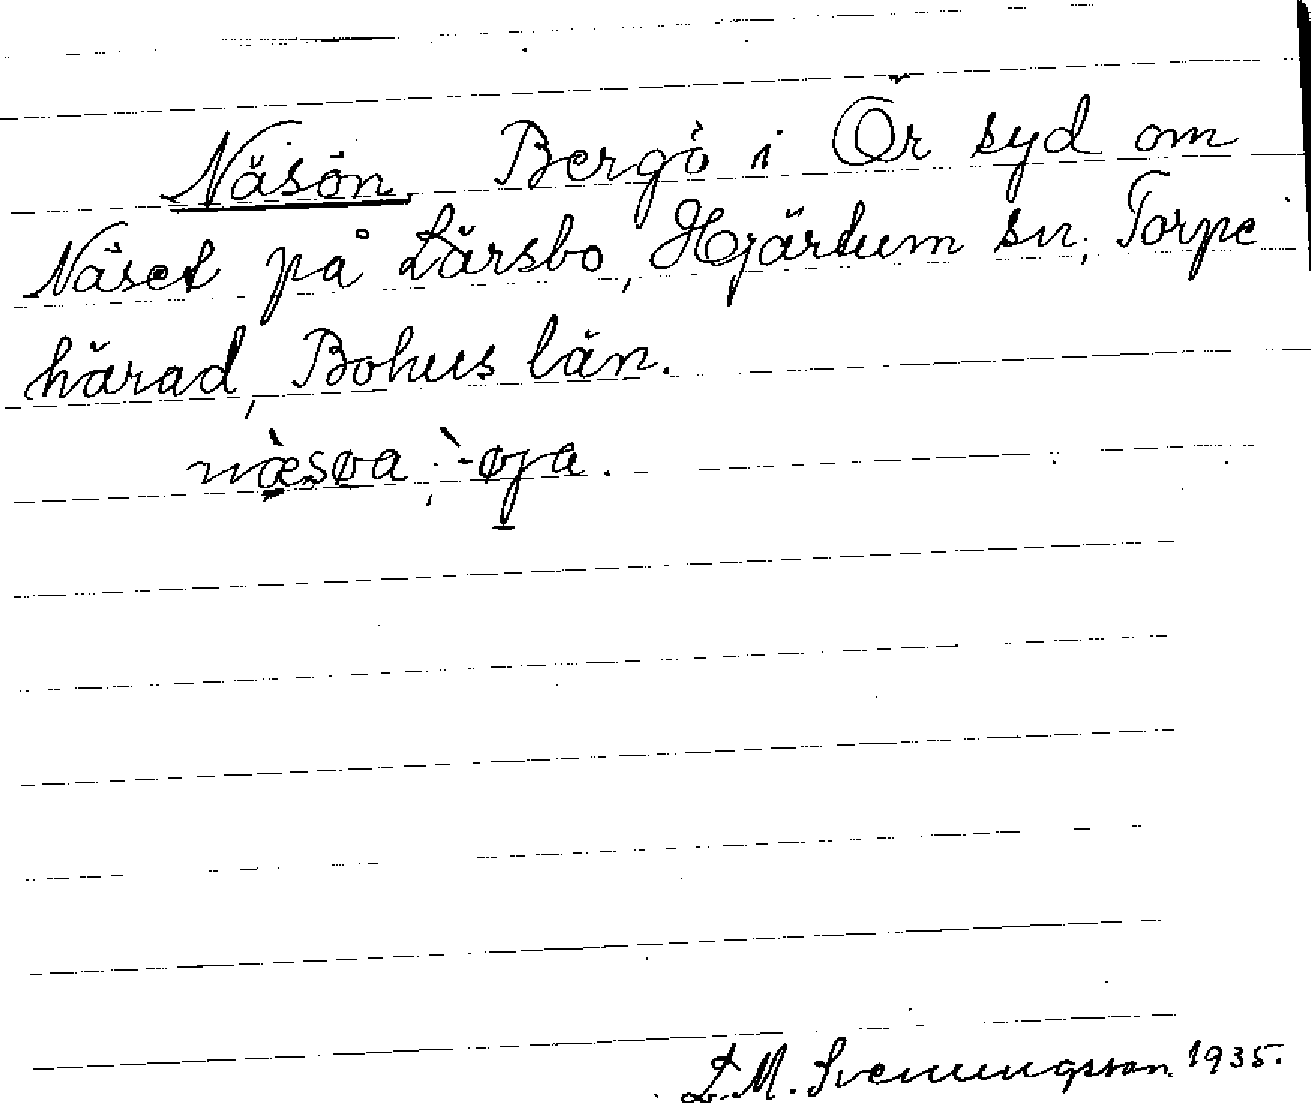 Näsön. Bergö i Ör syd om
Näset på Lärsbo, Hjärtum sn, Torpe
härad, Bohus län.
næ̀søa; `-øja.
L. M. Svenungsson 1935.